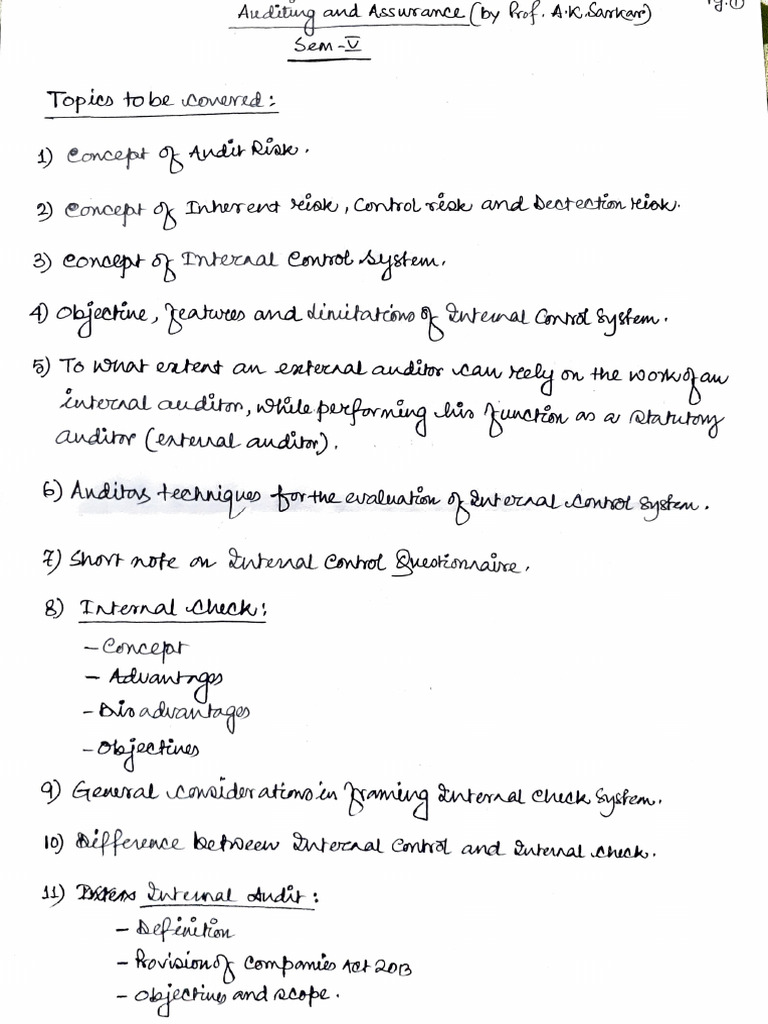 Auditing and Assurance (by Prof. A.K. Sarkar)
Pg. 1
Sem - V
Topics to be covered:
1) Concept of Audit Risk.
2) Concept of Inherent risk, Control risk and Dectection risk.
3) Concept of Internal Control System.
4) Objective, features and limitations of Internal Control System.
5) To what extent an external auditor can rely on the work of an
internal auditor, while performing his function as a statutory
auditor (external auditor).
6) Auditors techniques for the evaluation of Internal Control System.
7) Short note on Internal Control Questionnaire.
8) Internal Check:
- Concept
- Advantages
- Disadvantages
- Objectives
9) General considerations in framing Internal Check System.
10) Difference between Internal Control and Internal Check.
11) Internal Audit:
- Definition
- Provision of Companies Act 2013
- Objectives and scope.